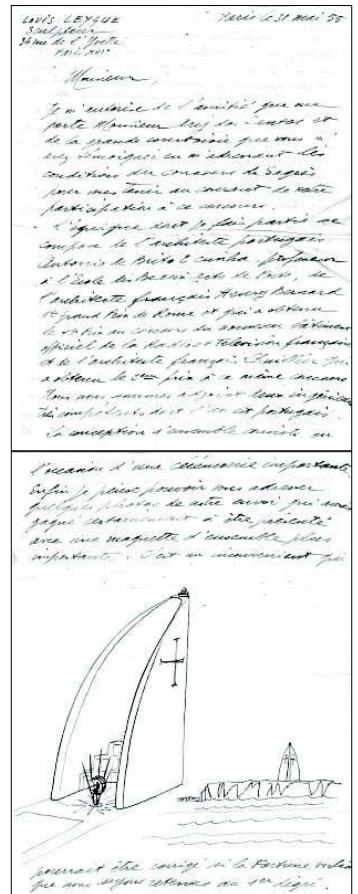 LOUIS LEYGUE Paris le 31 mai 55
Sculpteur
34 rue de l'Yvette
Paris XVIe
Monsieur,
Je m'autorise de l'amitié que me
porte Monsieur da Santos et
de la grande courtoisie que vous m'
avez témoignée en m'adressant les
conditions du concours de Sagres
pour vous tenir au courant de notre
participation à ce concours.
L'équipe dont je fais partie se
compose de l'architecte portugais
Antonio de Brito e Cunha, professeur
à l'Ecole des Beaux arts de Porto, de
l'architecte français Henry Bernard
1er grand Prix de Rome et qui a obtenu
le 1er Prix au concours du nouveau bâtiment
officiel de la Radio et Télévision française
et de l'architecte français Lhuillier qui
a obtenu le 2ème prix à ce même concours
Nous nous sommes adjoint deux ingénieurs
compétents dont l'un est portugais.
La conception d'ensemble consiste en
l'occasion d'une cérémonie importante.
Enfin je pense pouvoir vous adresser
quelques photos de notre envoi qui aurait
gagné certainement à être présenté
avec une maquette d'ensemble plus
importante. C'est un inconvénient qui
pourrait être corrigé si la Fortune voulait
que nous soyons retenus au 2e degré.